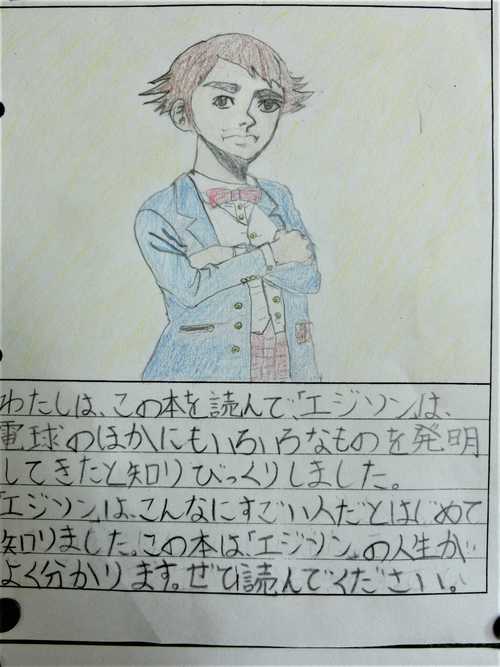 わたしは、この本を読んで、「エジソン」は、
電球のほかにもいろいろなものを発明
してきたと知りびっくりしました。
「エジソン」は、こんなにすごい人だとはじめて
知りました。この本は、「エジソン」の人生が
よく分かります。ぜひ読んでください。